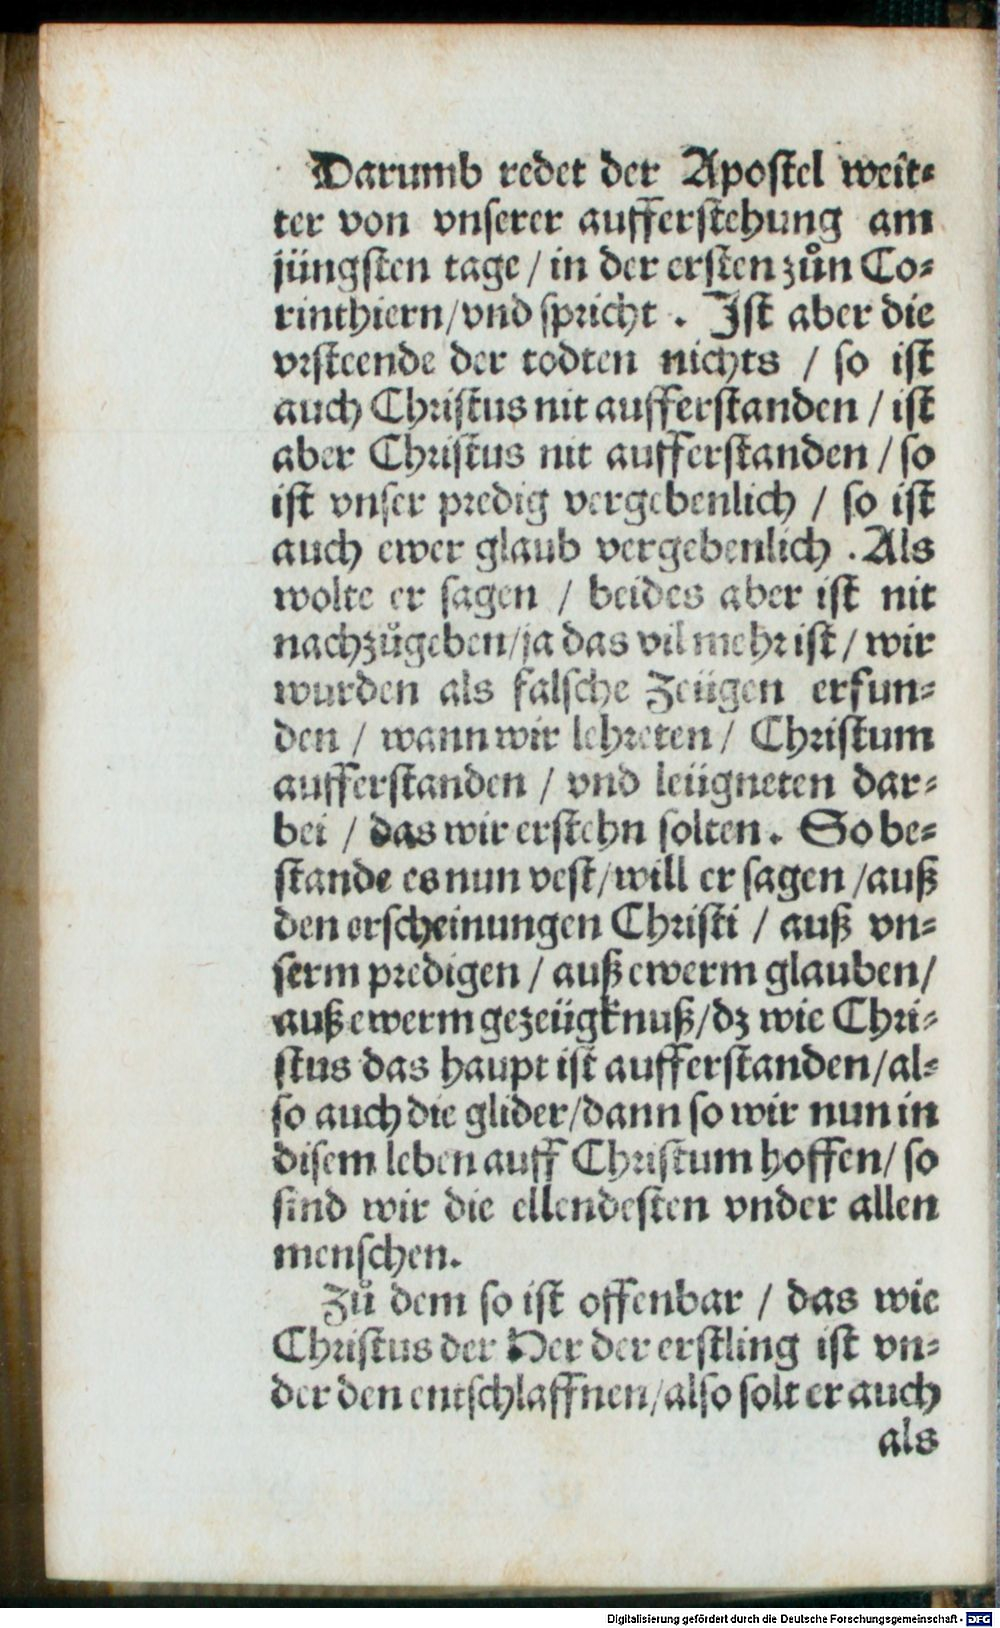 Darumb redet der Apostel weit⸗
ter von vnserer aufferstehung am
jüngsten tage / in der ersten zůn Co⸗
rinthiern / vnd spricht . Ist aber die
vrsteende der todten nichts / so ist
auch Christus nit aufferstanden / ist
aber Christus nit aufferstanden / so
ist vnser predig vergebenlich / so ist
auch ewer glaub vergebenlich . Als
wolte er sagen / beides aber ist nit
nachzůgeben / ja das vil mehr ist / wir
wurden als falsche Zeügen erfun⸗
den / wann wir lehreten / Christum
aufferstanden / vnd leügneten dar⸗
bei / das wir erstehn solten. So be⸗
stande es nun vest / will er sagen / auß
den erscheinungen Christi / auß vn⸗
serm predigen / auß ewerm glauben /
auß ewerm gezeügknuß / dz wie Chri⸗
stus das haupt ist aufferstanden / al⸗
so auch die glider / dann so wir nun in
disem leben auff Christum hoffen / so
sind wir die ellendesten vnder allen
menschen.
Zů dem so ist offenbar / das wie
Christus der Her der erstling ist vn⸗
der den entschlaffnen / also solt er auch
als
Digitalisierung gefördert durch die Deutsche Forschungsgemeinschaft - DFG